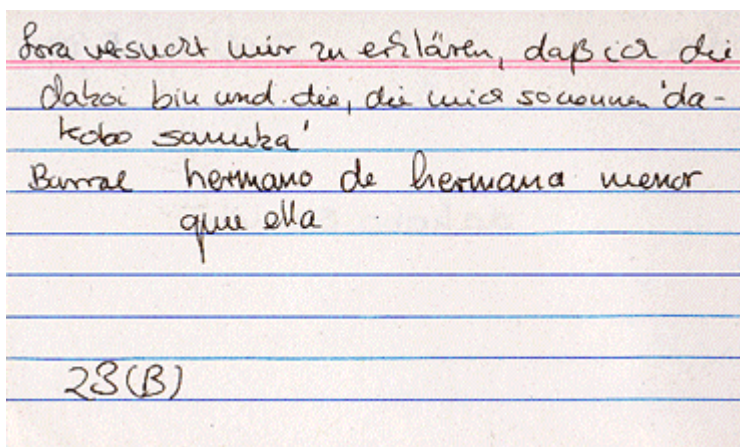 Lora versucht mir zu erklären, daß ich die
dakoi bin und die, die mich so nennen 'da-
kobo samuka'
Barral hermano de hermana menor
que ella
23(B)